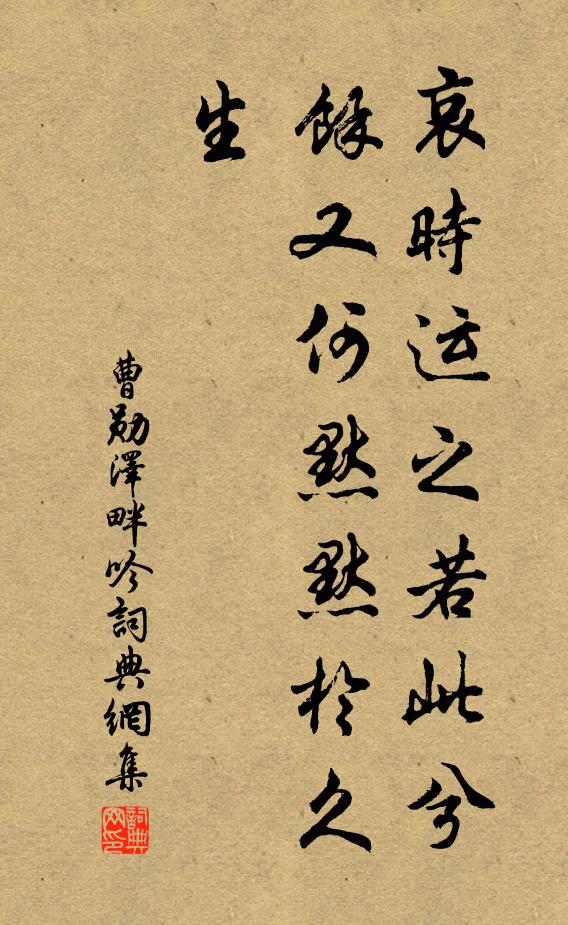 哀時运之若此兮
餘又何默默於久
生
曹勋澤畔吟詞典網集
詞典
网印